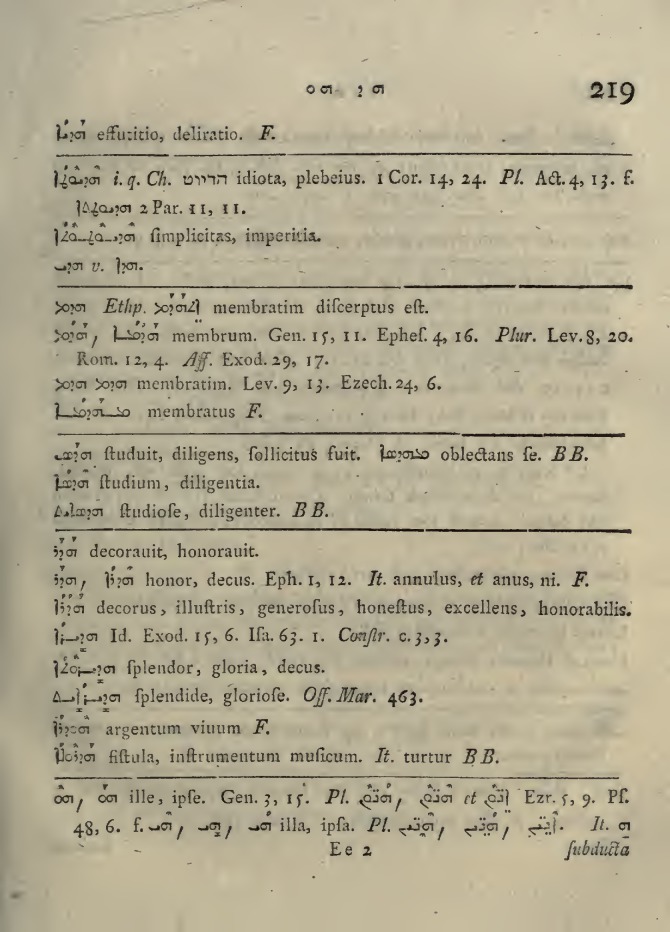 ܗܕ ܗܘ 219
ܗܕܝܐ effutitio, deliratio. F.
ܗܕܝܘܛܐ i. q. Ch. הדיוט idiota, plebeius. 1 Cor. 14, 24. Pl. Act. 4, 13. f.
ܗܕܝܘܛܬܐ 2 Par. 11, 11.
ܗܕܝܘܛܘܬܐ ſimplicitas, imperitia.
v.
ܗܕܡ Ethp. ܐܬܗܕܡ membratim diſcerptus eſt.
ܗܕܡ, ܗܕܡܐ membrum. Gen. 15, 11. Epheſ. 4, 16. Plur. Lev. 8, 20.
Rom. 12, 4. Aff. Exod. 29, 17.
ܗܕܡ ܗܕܡ membratim. Lev. 9, 13. Ezech. 24, 6.
ܡܗܕܡܐ membratus F.
ܗܕܣ ſtuduit, diligens, ſollicitus fuit. ܡܗܕܣܐ oblectans ſe. BB.
ܗܕܣܐ ſtudium, diligentia.
ſtudioſe, diligenter. BB.
ܗܕܪ decorauit, honorauit.
ܗܕܪ, ܗܕܪܐ honor, decus. Eph. 1, 12. It. annulus, et anus, ni. F.
ܗܕܪܐ decorus, illuſtris, generoſus, honeſtus, excellens, honorabilis.
ܗܕܝܪܐ Id. Exod. 15, 6. Iſa. 63. 1. Conſtr. c. 3, 3.
ܗܕܝܪܘܬܐ ſplendor, gloria, decus.
ܗܕܝܪܐܝܬ ſplendide, glorioſe. Off. Mar. 463.
argentum viuum F.
ܗܕܪܘܠܐ fiſtula, inſtrumentum muſicum. It. turtur BB.
ܗܘ, ܗܘ ille, ipſe. Gen. 3, 15. Pl. ܗܢܘܢ, ܗܢܘܢ et ܐܢܘܢ Ezr. 5, 9. Pſ.
48, 6. f. ܗܝ, ܗܝ, ܗܝ illa, ipſa. Pl. ܗܢܝܢ, ܗܢܝܢ, ܐܢܝܢ. It. ܗ
Ee 2 ſubducta